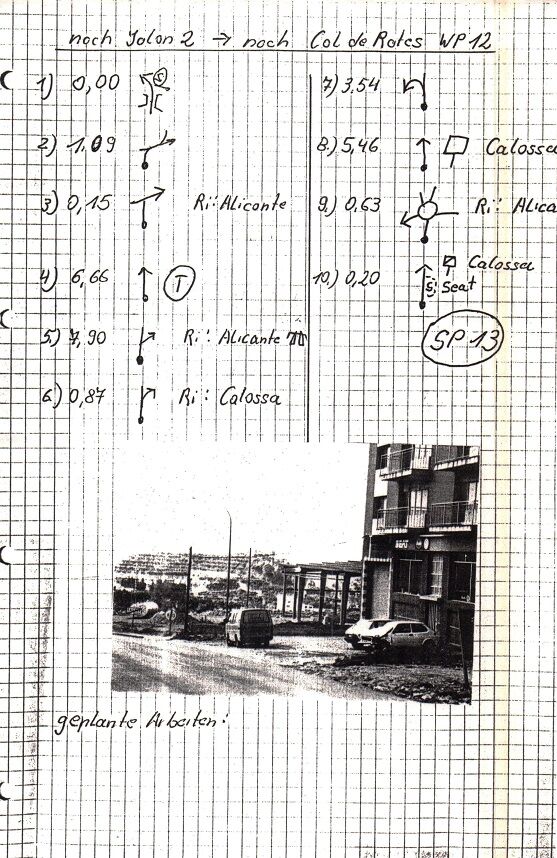 nach Jalon 2 → nach Col de Rates WP 12
1) 0,00 S
2) 1,09
3) 0,15 Ri: Alicante
4) 6,66 T
5) 7,90 Ri: Alicante
6) 0,87 Ri: Calossa
7) 3,54
8.) 5,46 Calossa
9.) 0,63 Ri: Alica
10.) 0,20 Calossa
S: Seat
SP 13
geplante Arbeiten: